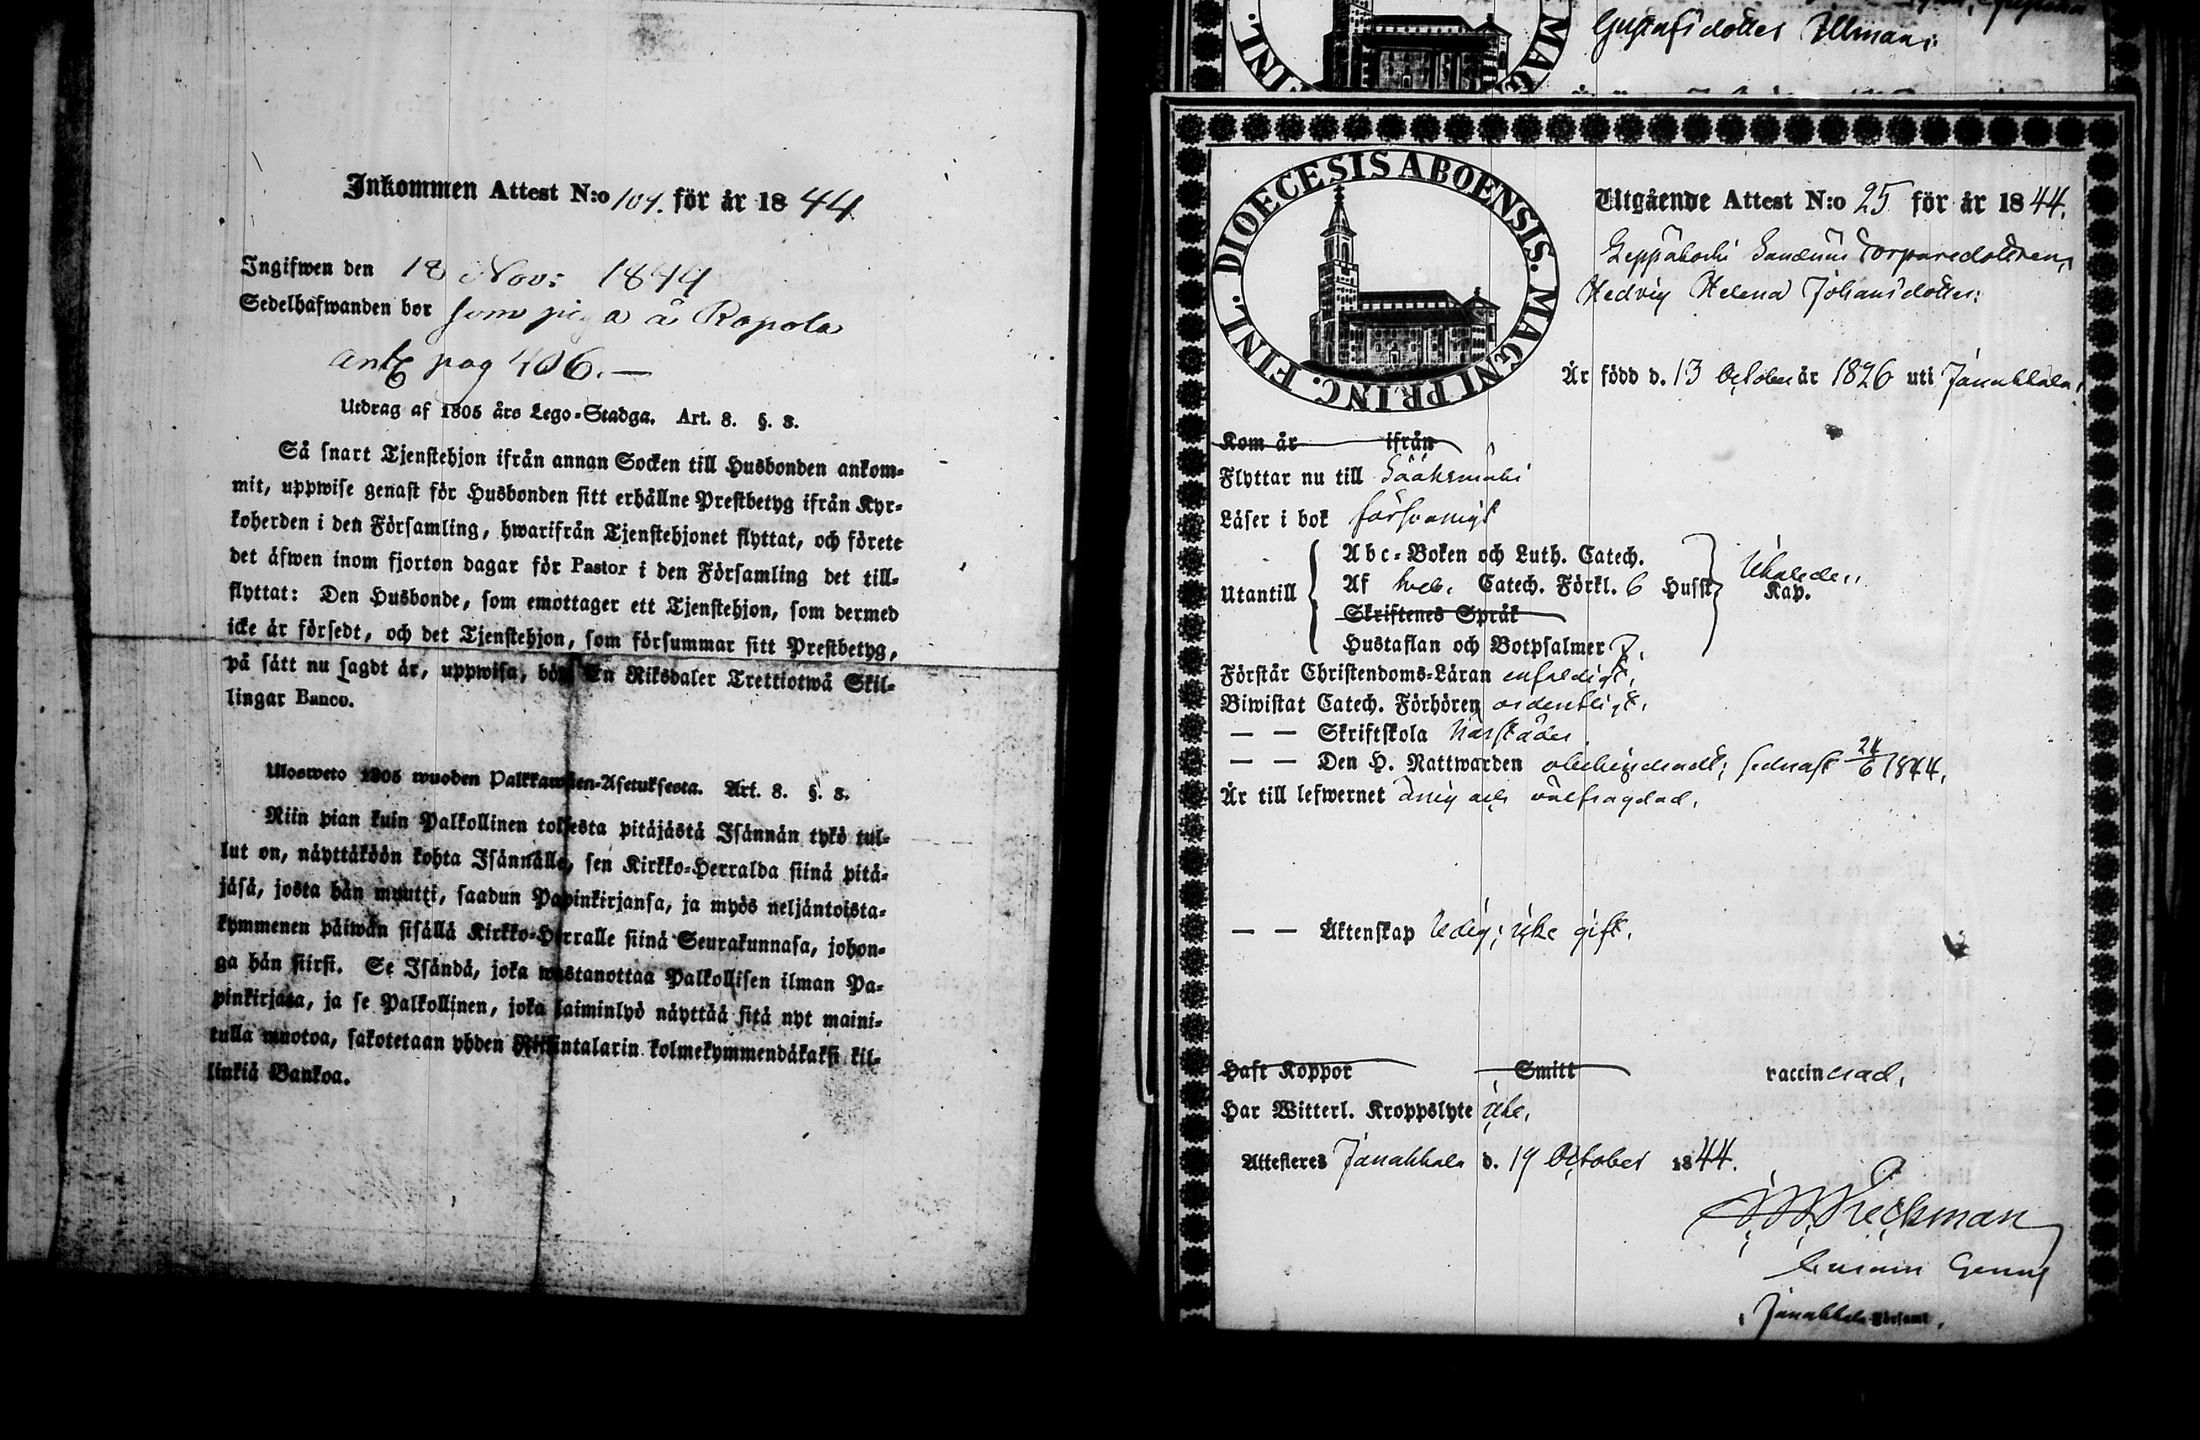 Inkommen Attest N:o 104. för år 1844
Ingifwen den 18 Nov: 1844
Sedelhafwanden bor som piga å Rapola
ant pag 406. —
Utdrag af 1805 års Lego-Stadga. Art. 8. §. 8.
Så snart Tjenstehjon ifrån annan Socken till Husbonden ankom-
mit, uppwise genast för Husbonden sitt erhållne Prestbetyg ifrån Kyr-
koherden i den Församling, hwarifrån Tjenstehjonet flyttat, och förete
det äfwen inom fjorton dagar för Pastor i den Församling det till-
flyttat: Den Husbonde, som emottager ett Tjenstehjon, som dermed
icke är försedt, och det Tjenstehjon, som försummar sitt Prestbetyg,
på sätt nu sagdt är, uppwisa, böte En Riksdaler Trettiotwå Skil-
lingar Banco.
Ulosweto 1805 wuoden Palkkawäen-Asetuksesta. Art. 8. §. 8.
Niin pian kuin Palkollinen toisesta pitäjästä Isännän tykö tul-
lut on, näyttäköön kohta Isännälle, sen Kirkko-Herralda siinä pitä-
jäsä, josta hän muutti, saadun Papinkirjansa, ja myös neljäntoista-
kymmenen päiwän sisällä Kirkko-Herralle siinä Seurakunnasa, johon-
ga hän siirsi. Se Isändä, joka wastanottaa Palkollisen ilman Pa-
pinkirjata, ja se Palkollinen, joka laiminlyö näyttää sitä nyt maini-
tulla muotoa, sakotetaan yhden Riksintalarin kolmekymmendäkaksi kil-
linkiä Bankoa.
Gustafsdotter Ullman:
DIOECESIS ABOENSIS. MAGNI PRINC. FINL.
Utgående Attest N:o 25 för år 1844.
Leppäkoski Torparedottren,
Hedvig Helena Johansdotter:
Är född d. 13 October år 1826 uti Janakkala,
Kom år ifrån
Flyttar nu till Sääksmäki
Läser i bok försvarligt
Utantill
Abc-Boken och Luth. Catech.
Af Catech. Förkl. 6 Husst
Skriftenes Språk
Hustaflan och Botpsalmer 7,
Kap.
Förstår Christendoms-Läran enfaldigt,
Biwistat Catech. Förhören ordentligt,
— — Skriftskola
— — Den H. Nattwarden obehindradt; sednast 24/6 1844,
Är till lefwernet ärlig och välfrägdad,
— — Äktenskap ledig; icke gift.
Haft Koppor Smitt vaccinerad,
Har Witterl. Kroppslyte icke,
Attesteres Janakkala d. 19 October 1844.
Janakkala Församl.